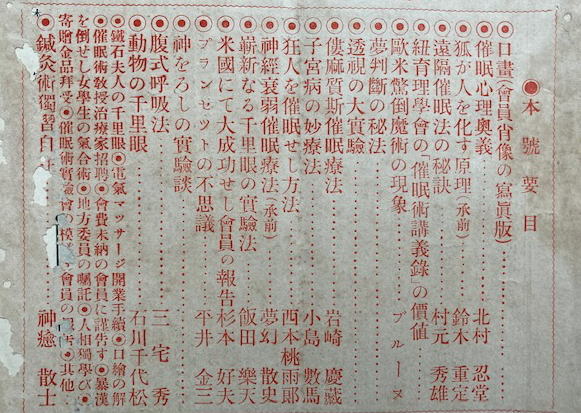 ◉本號要目
◉口畫(會員肖像の寫眞版)
◉催眠心理奧義 北村忍堂
◉狐が人を化す原理(承前) 鈴木重定
◉遠隔催眠法の秘訣 村元秀雄
◉紐育理學會の「催眠術講義錄」の價値
◉歐米驚倒魔術の現象 ブルーヌ
◉夢判斷の秘法
◉透視の大實驗
◉僂麻質斯催眠療法 岩崎慶藏
◉子宮病の妙療法 小島數馬
◉狂人を催眠せし方法 西本桃雨郎
◉神經衰弱催眠療法(承前) 夢幻散史
◉嶄新なる千里眼の實驗法 飯田樂天
◉米國にて大成功せし會員の報告 杉本好夫
◉プランセットの不思議 平井金三
◉神をろしの實驗談
◉腹式呼吸法 三宅秀
◉動物の千里眼 石川千代松
鐵石夫人の千里眼◉電氣マッサージ開業手續◉口繪の解
◉催眠術敎授治療家招聘◉會費未納の會員に謹告す◉暴漢
を倒せし女學生の氣合術◉地方委員の囑託◉人相獨學び◉
寄贈金品拜受◉催眠術實驗會の模 會員の 吿◉其他
◉鍼灸術獨習自 神癒散士